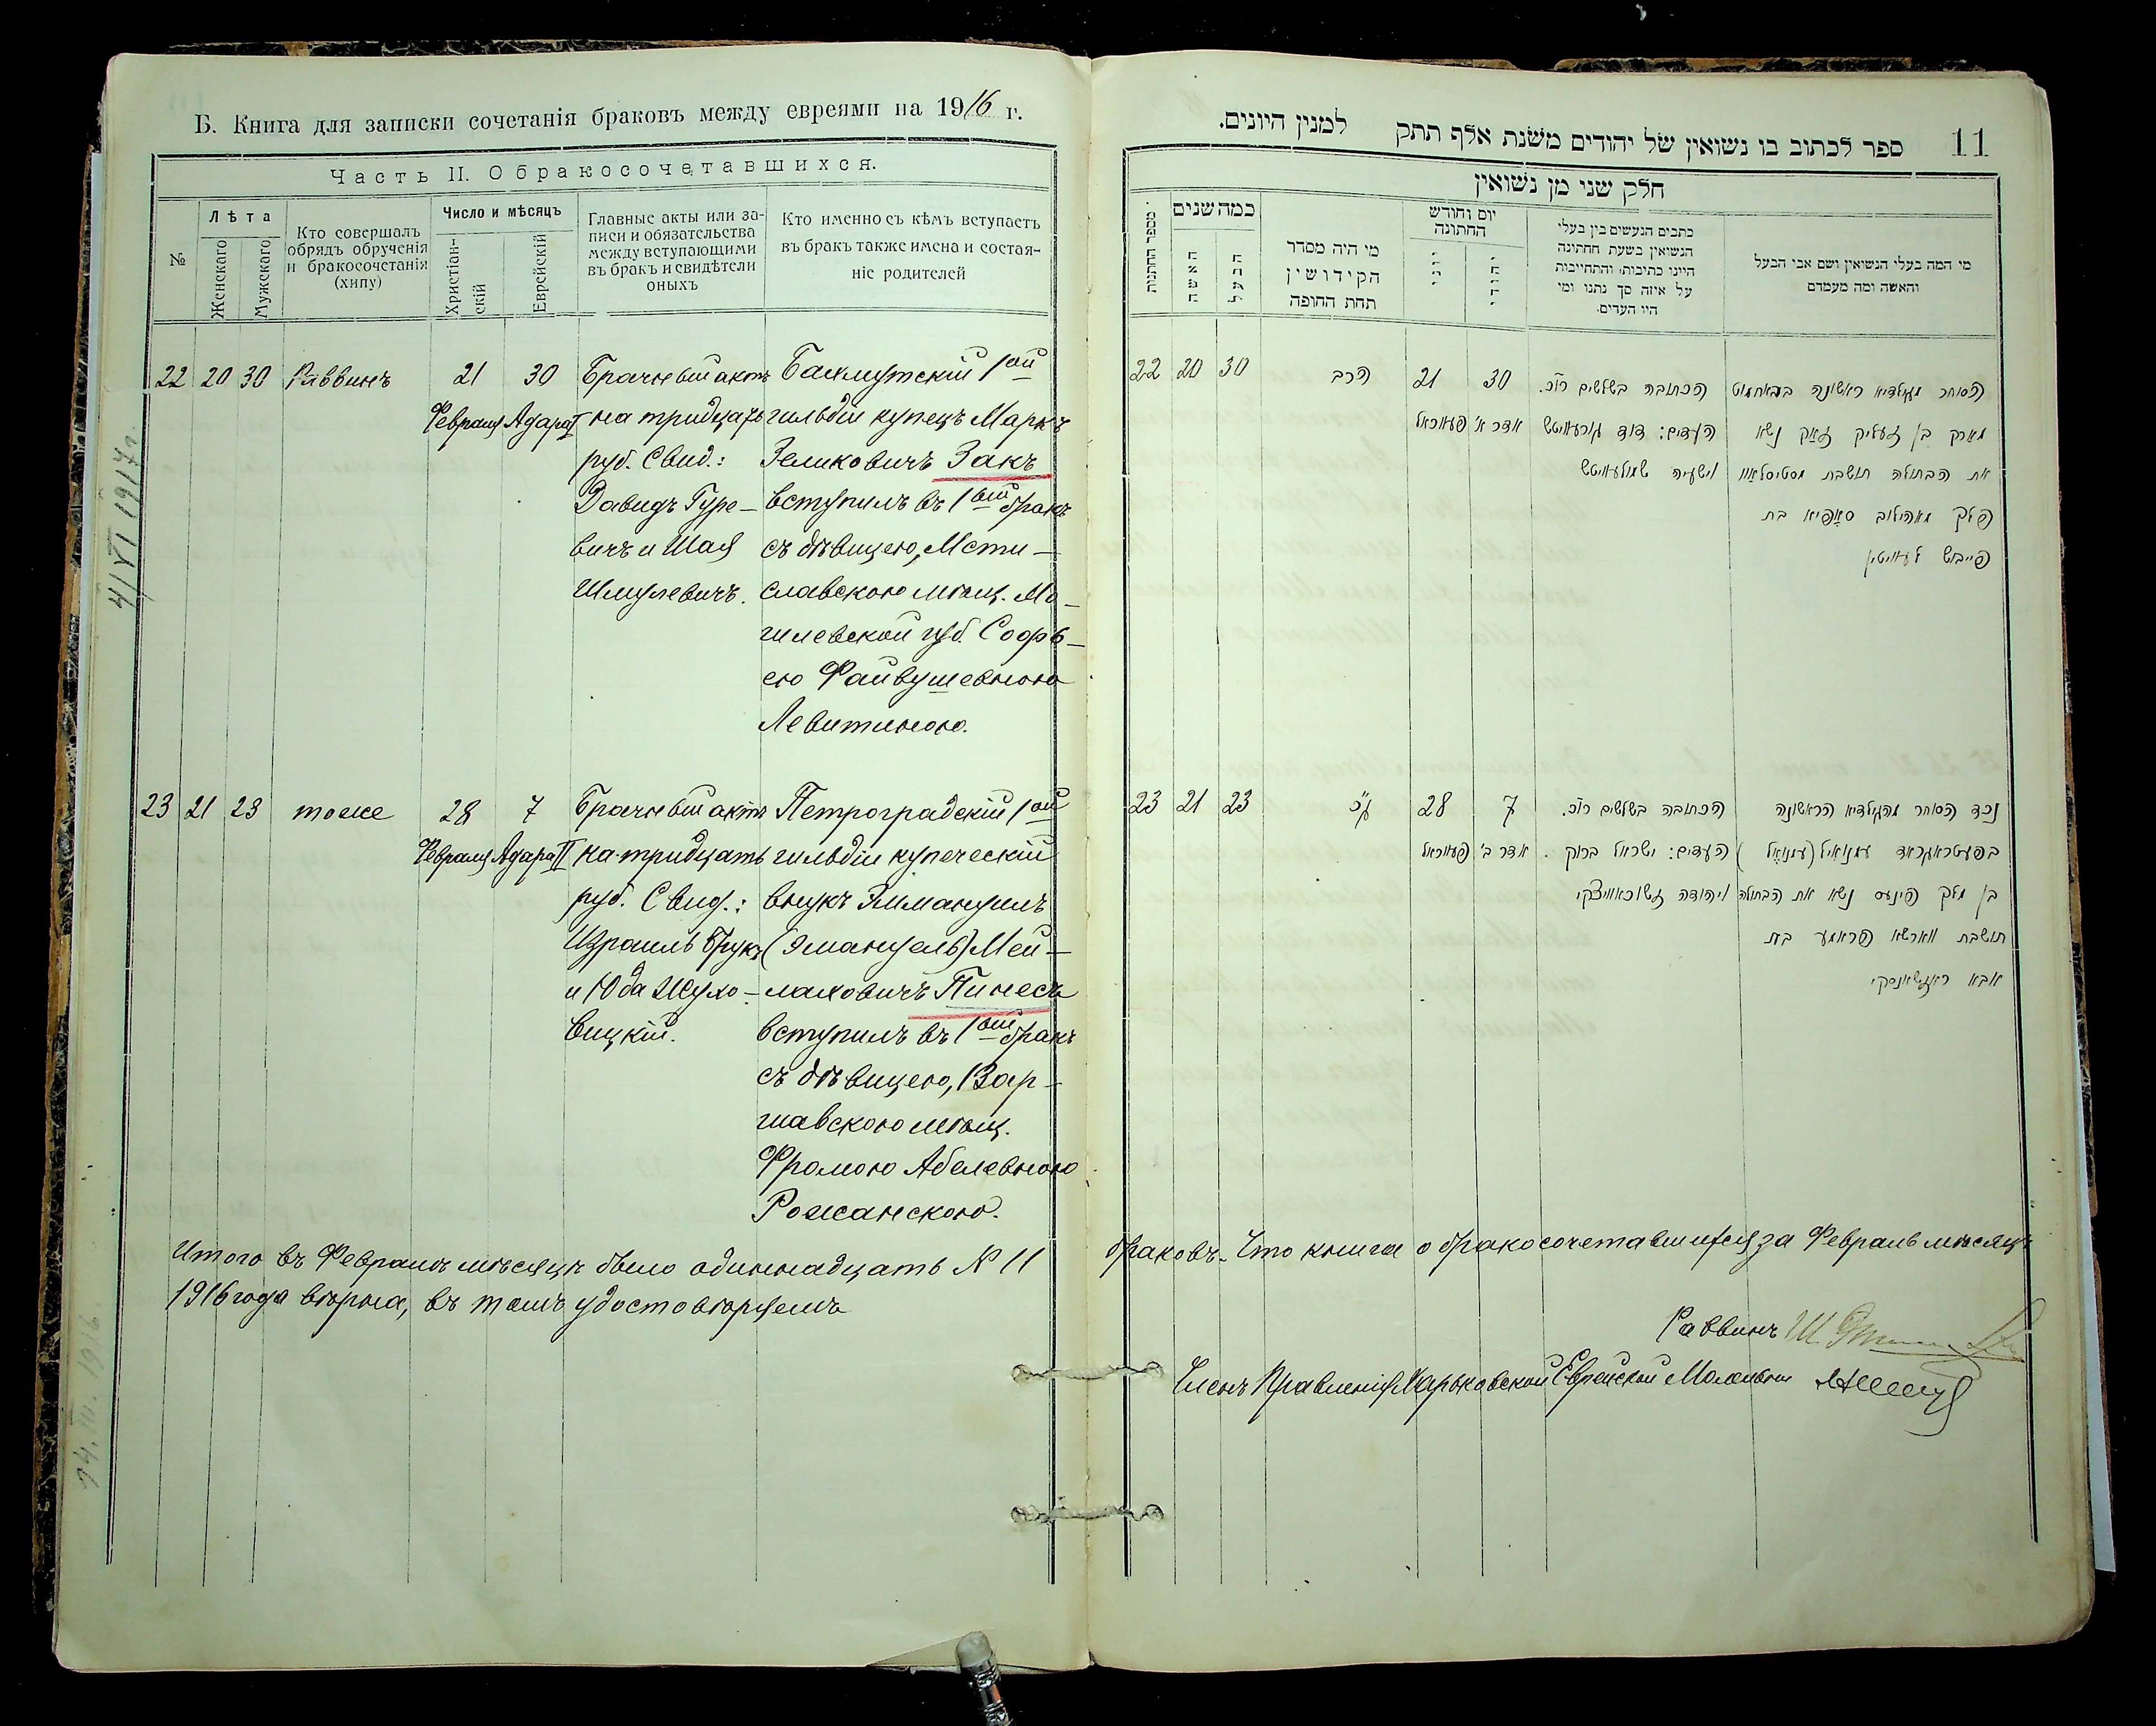 Б. Книга для записки сочетанія браковъ между евреями на 1916 г.
Часть II. О бракосочетавшихся.
№
Лѣта
Женскаго
Мужскаго
Кто совершалъ
обрядъ обрученія
и бракосочетанія
(хипу)
Число и мѣсяцъ
Христіан-
скій
Еврейскій
Главные акты или за-
писи и обязательства
между вступающими
въ бракъ и свидѣтели
оныхъ
Кто именно съ кѣмъ вступаетъ
въ бракъ также имена и состоя-
ніе родителей
22 20 30 Раввинъ 21 30 Брачный актъ Бахмутскій 1ой
Февраля Адара I на тридцать гильдіи купецъ Маркъ
руб. Свид.: Зеликовичъ Закъ
Давидъ Гуре- вступилъ въ 1ый бракъ
вичъ и Шая съ дѣвицею, Мсти-
Шмулевичъ. славскою мѣщ. Мо-
гилевской губ. Софь-
ею Файвушевною
Левитиною.
23 21 23 тоже 28 7 Брачный актъ Петроградскій 1ой
Февраля Адара II на тридцать гильдіи купеческій
руб. Свид.: внукъ Эммануилъ
Израиль Брукъ (Эмануель) Мей-
и Юда Жухо- лаховичъ Пинесъ
вицкій. вступилъ въ 1ый бракъ
съ дѣвицею, Вар-
шавскою мѣщ.
Фромою Абелевною
Рожанскою.
Итого въ Февралѣ мѣсяцѣ было одиннадцать № 11
1916 года вѣрна, въ томъ удостовѣряемъ
4/VI 1917 г.
14. III. 1916
11
ספר לכתוב בו נשואין של יהודים משנת אלף תתק למנין היונים.
חלק שני מן נשואין
מספר החתונות
כמה שנים
האשה
הבעל
מי היה מסדר
הקידושין
תחת החופה
יום וחודש
החתונה
יוני
יהודי
כתבים הנעשים בין בעלי
הנשואין בשעת חתונה
היינו כתיבות, והתחייבות
על איזה סך נתנו ומי
היו העדים.
מי המה בעלי הנשואין ושם אבי הבעל
והאשה ומה מעמדם
22 20 30 הרב 21 30 הכתובה בשלשים רו"כ. הסוחר מגילדיא ראשונה בבאחמוט
אדר א' פעווראל העדים: דוד גורעוויטש מארק בן זעליק זאק נשא
וישעיה שמולעוויטש את הבתולה תושבת מסטיסלאוו
פלך מאהילוב סאפיא בת
פייבוש לעוויטין
23 21 23 כנ"ל 28 7 הכתובה בשלשים רו"כ. נכד הסוחר מהגילדיא הראשונה
אדר ב' פעווראל העדים: ישראל ברוק בפעטראגראד עמנואיל (עמנואל)
ויהודה זשוכאוויצקי בן מלך פינעס נשא את הבתולה
תושבת ווארשא פראמע בת
אבא ראזשאנסקי
браковъ. Что книга о бракосочетавшихся за Февраль мѣсяцъ
Раввинъ
Членъ Правленія Харьковской Еврейской Молельни